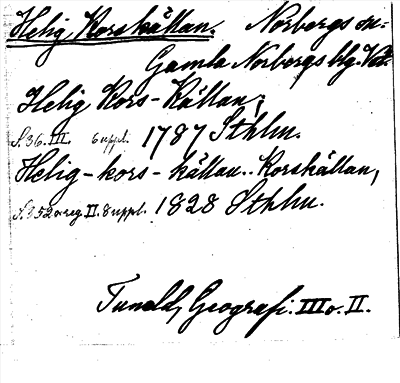 Helig Korskällan. Norbergs sn:
Gamla Norbergs blg. Vstm.
Helig Kors-Källan;
S. 36. III. 6 uppl. 1787 Sthlm.
Helig-kors-källan.. Korskällan,
S. 352 o reg. II. 8 uppl. 1828 Sthlm.
Tuneld, Geografi. III o. II.